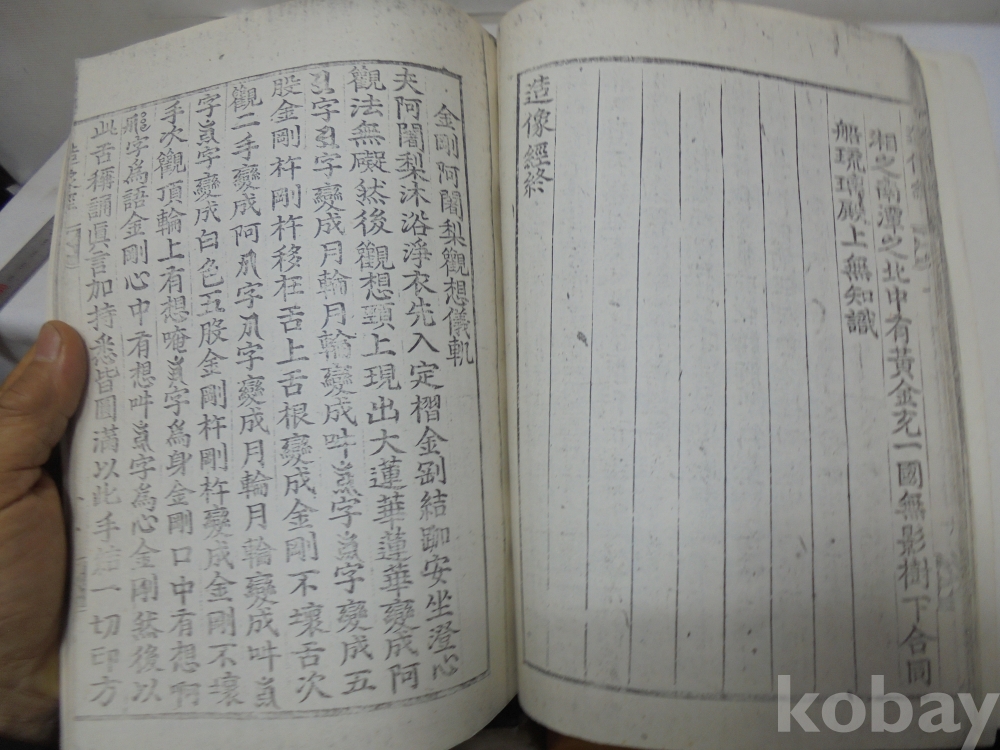 湘之南潭之北中有黃金充一國無影樹下合同
船琉璃殿上無知識
造像經終
金剛阿闍梨觀想儀軌
夫阿闍梨沐浴淨衣先入定摺金剛結跏安坐澄心
觀法無礙然後觀想頸上現出大蓮華蓮華變成阿
字字變成月輪月輪變成吽字字變成五
股金剛杵剛杵移在舌上舌根變成金剛不壞舌次
觀二手變成阿字字變成月輪月輪變成吽
字字變成白色五股金剛杵剛杵變成金剛不壞
手次觀頂輪上有想唵字爲身金剛口中有想啊
字爲語金剛心中有想吽字爲心金剛然後以
此舌稱誦眞言加持悉皆圓滿以此手結一切印方
kobay